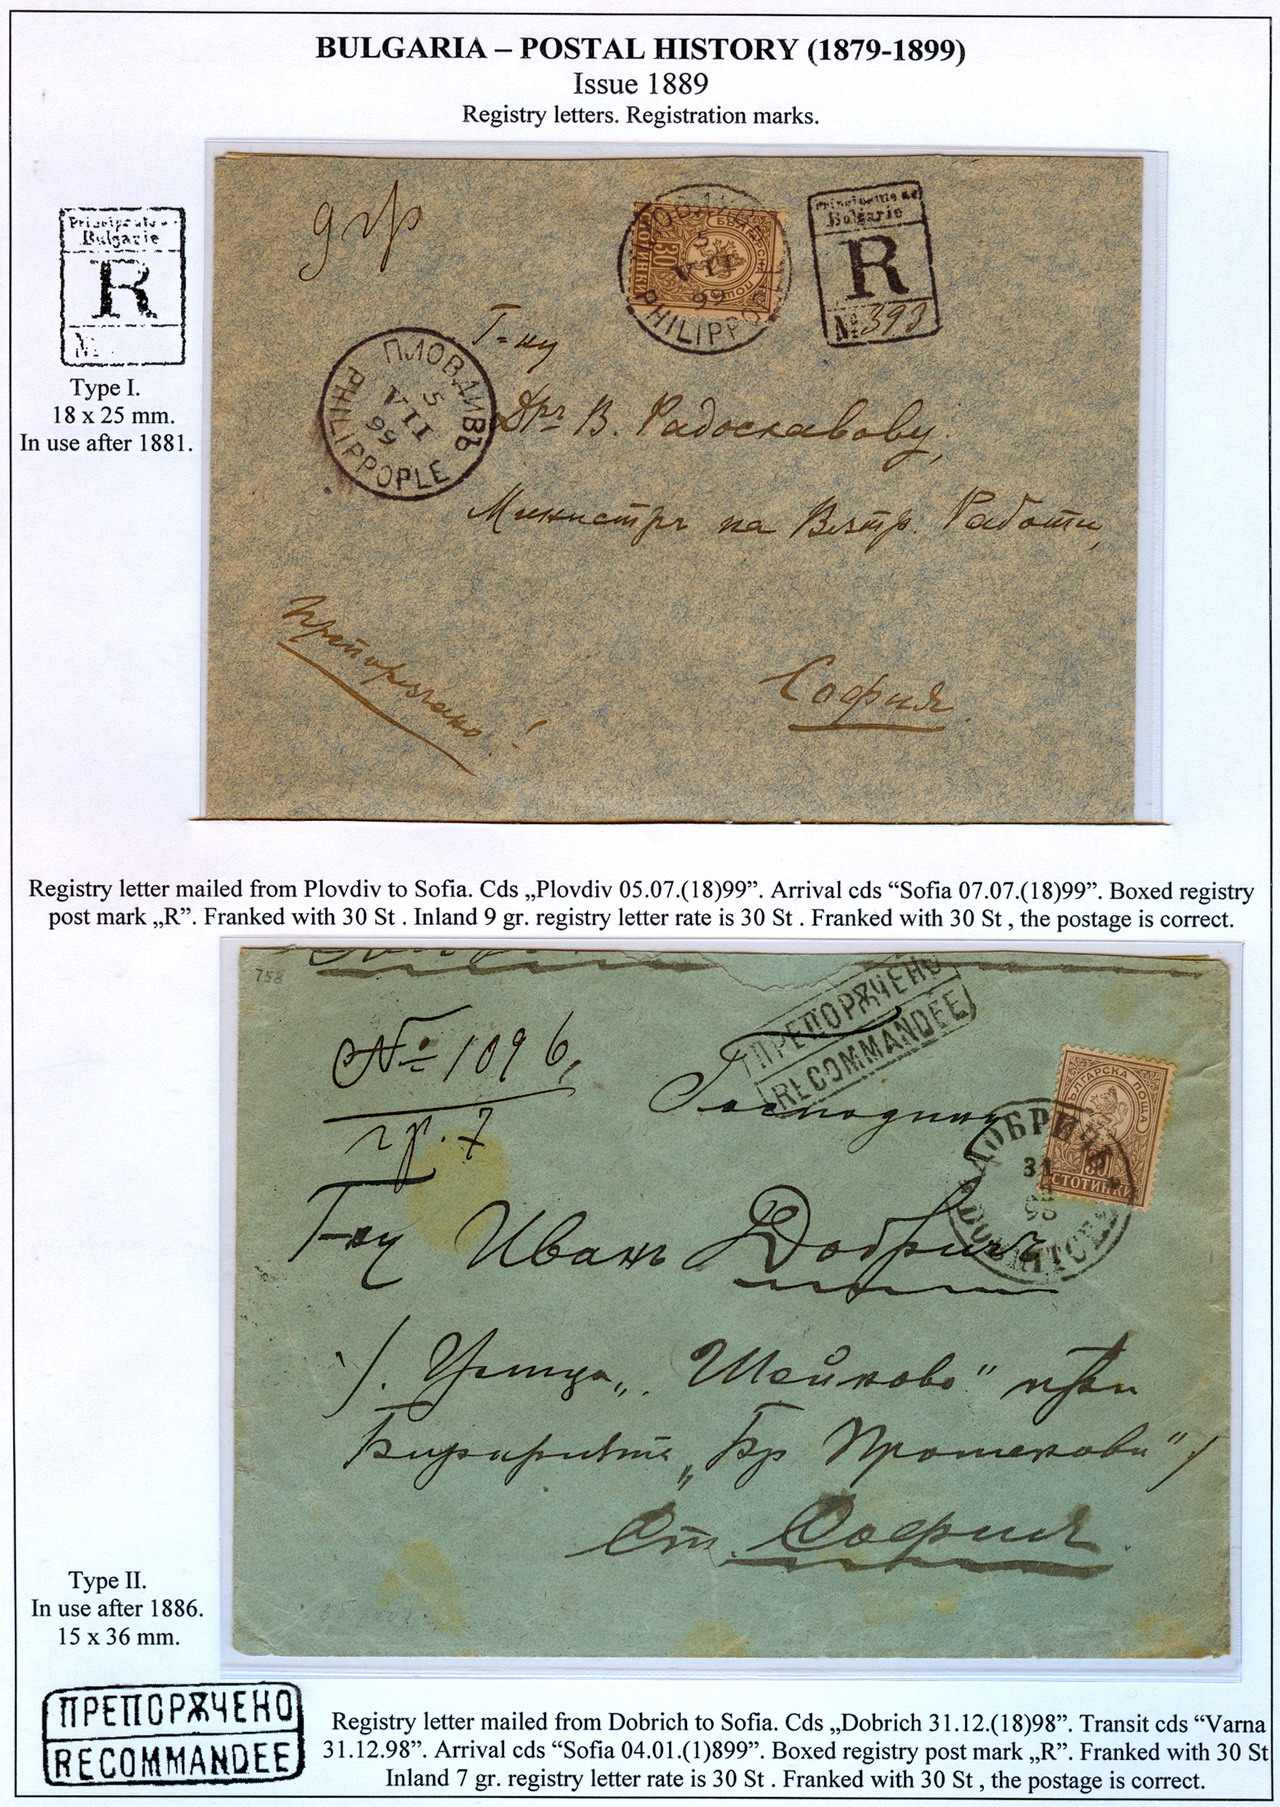 BULGARIA – POSTAL HISTORY (1879-1899)
Issue 1889
Registry letters. Registration marks.
Bulgarie
R
№
Type I.
18 x 25 mm.
In use after 1881.
9 гр
ПЛОВДИВЪ
5
VII
99
PHILIPPOPLE
5
VII
99
PHILIPPO
30
Bulgarie
R
№ 393
Г-ну
Дръ В. Радославову,
Министръ на Вѫтр. Работи,
Препорѫчано!
София
Registry letter mailed from Plovdiv to Sofia. Cds „Plovdiv 05.07.(18)99”. Arrival cds “Sofia 07.07.(18)99”. Boxed registry
post mark „R”. Franked with 30 St . Inland 9 gr. registry letter rate is 30 St . Franked with 30 St , the postage is correct.
758
№ 1096,
гр. 7
ПРЕПОРѪЧЕНО
RECOMMANDEE
Господину
БЪЛГАРСКА ПОЩА
СТОТИНКИ
ДОБРИЧЪ
31
Г-ну Иванъ Добричъ
/. Улица „Шейново“ при
„Бр Прошекови“ /
Ст. София.
Type II.
In use after 1886.
15 x 36 mm.
ПРЕПОРѪЧЕНО
RECOMMANDEE
Registry letter mailed from Dobrich to Sofia. Cds „Dobrich 31.12.(18)98”. Transit cds “Varna
31.12.98”. Arrival cds “Sofia 04.01.(1)899”. Boxed registry post mark „R”. Franked with 30 St
Inland 7 gr. registry letter rate is 30 St . Franked with 30 St , the postage is correct.